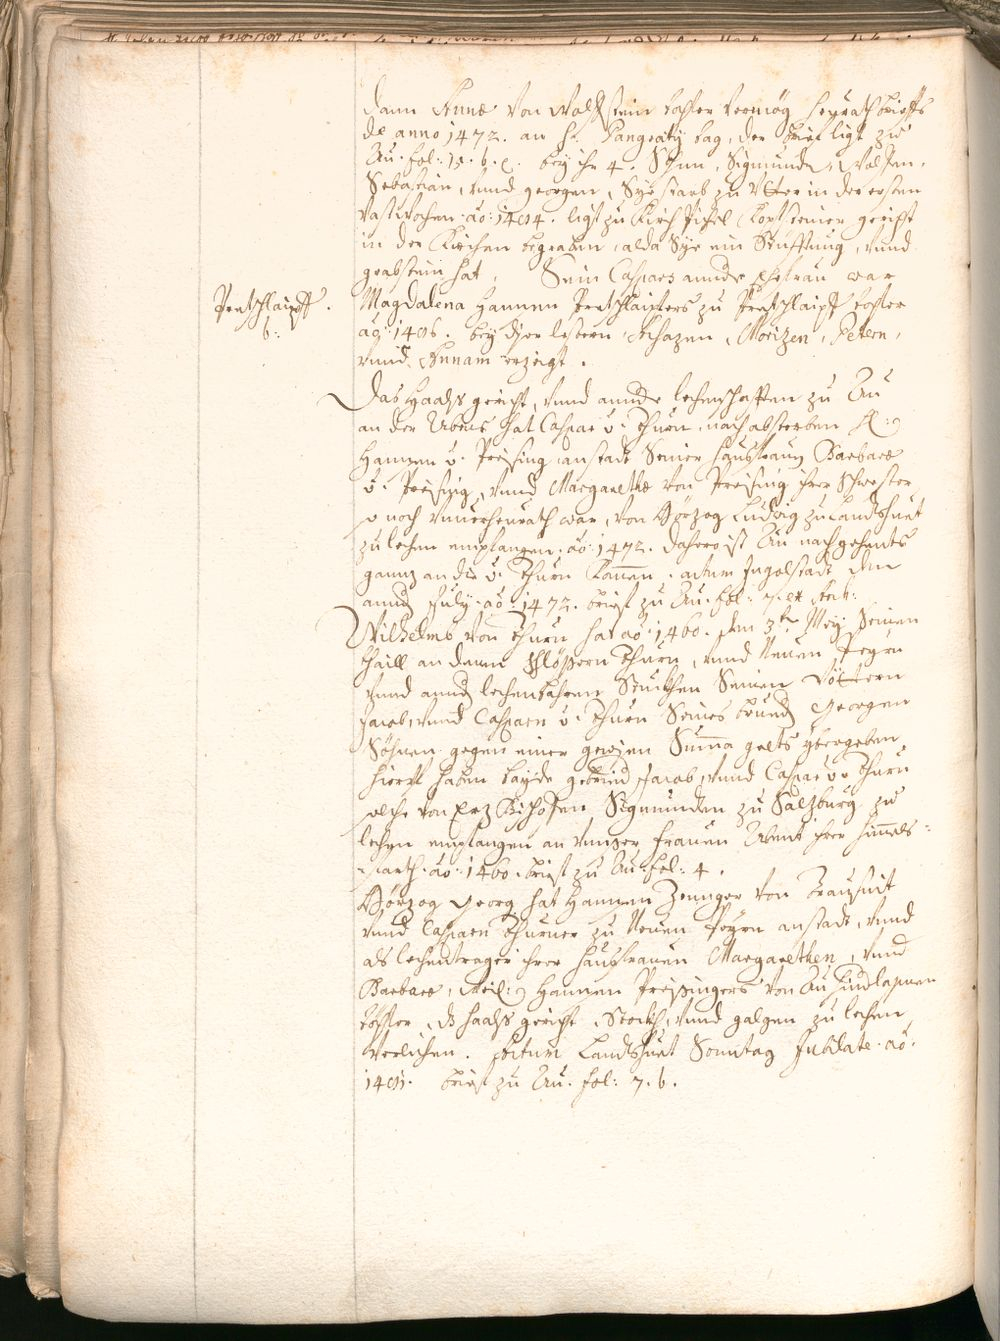 dann Annæ von Walkstein tochter vermög heyrathbrieffs
de anno 1472. an St. Pangratÿ tag, der brief ligt zu
Au. fol: 15. b. c. bey ihr 4 Söhn, Sigmund, Wolfen,
Sebastian, vnnd georgen, Sÿe starb zu Vtter in der ersten
vastwochen. aõ: 1484. ligt zu Kirch seiner gericht
in der Kirchen begraben, alda Sÿe ein Stüfftung, vnnd
grabstein hat. Sein Caspars annder ehefrau war
Pretschlaipff.
Magdalena Hannen Pretschlaipfers zu Pretschlaipff tochter
b:
aõ: 1486. bey diser lestern Achazen, Morizen, Petern,
vnnd Annam erzeigt.
Das Haalsgericht, vnnd annder lehenschafften zu Au
an der Abens hat Caspar v. Thurn, nach absterben
Hannsen v. Preising anstadt Seiner haussfraun Barbaræ
v. Preising, vnnd Margarethæ von Preising ihrer Schwester
so noch vnuerheurath war, von Hörzog Ludwig zu Landtshuet
zu lehen empfangen. aõ: 1472. dahero ist Au nachgehents
ganz an die v. Thurn komen. actum Ingolstadt den
July. aõ: 1472. brief zu Au. fol: 7.
Wilhelmb von Thurn hat aõ. 1460. den 3tn Meÿ Seinen
thaill an denen Schlössern Thurn, vnnd Neuen Peÿrn
vnnd annder lehenbahren Stuckhen Seinen Vöttern
Jacob, vnnd Caspar v. Thurn Seines brueder Georgen
Söhnen gegen einer gewisen Suma gelts ybergeben
hierauf haben bayde gebrüeder Jacob, vnnd Caspar v. Thurn
solche von Erz Bischofen Sigmunden zu Salzburg zu
lehen empfangen an vnnser Frauen Abent ihrer himels-
farth. aõ: 1460. brief zu Au. fol: 4.
Hörzog Georg hat Hannsen Zennger von Trausnit
vnnd Caspar Thurner zu Neuen Peÿrn anstadt, vnnd
als lehentrager ihrer hausfrauen Margarethen, vnnd
Barbaræ, weil: Hannsen Preysingers von Au hindlassnen
tochter, das haals gericht, Stockh, vnnd galgen zu lehen
verlichen. Actum Landtshuet Sonntag Jubilate. aõ.
1481. brief zu Au. fol: 7. b.